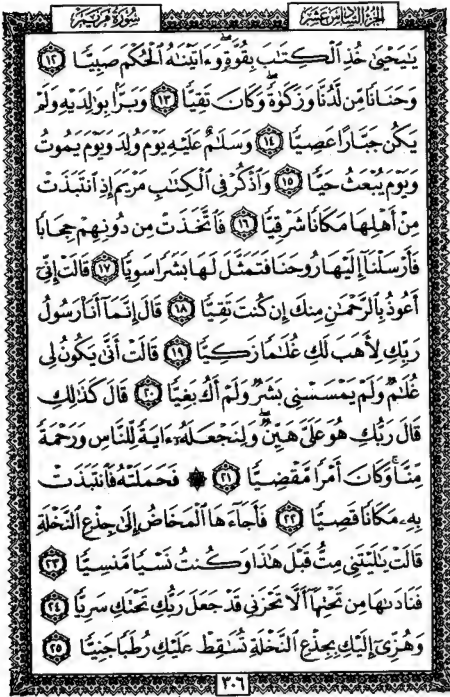 الجزء السادس عشر
سورة مريم
يَٰيَحْيَىٰ خُذِ ٱلْكِتَٰبَ بِقُوَّةٍۖ وَءَاتَيْنَٰهُ ٱلْحُكْمَ صَبِيًّا ١٢
وَحَنَانًا مِّن لَّدُنَّا وَزَكَوٰةًۖ وَكَانَ تَقِيًّا ١٣ وَبَرًّۢا بِوَٰلِدَيْهِ وَلَمْ
يَكُن جَبَّارًا عَصِيًّا ١٤ وَسَلَٰمٌ عَلَيْهِ يَوْمَ وُلِدَ وَيَوْمَ يَمُوتُ
وَيَوْمَ يُبْعَثُ حَيًّا ١٥ وَٱذْكُرْ فِى ٱلْكِتَٰبِ مَرْيَمَ إِذِ ٱنتَبَذَتْ
مِنْ أَهْلِهَا مَكَانًا شَرْقِيًّا ١٦ فَٱتَّخَذَتْ مِن دُونِهِمْ حِجَابًا
فَأَرْسَلْنَآ إِلَيْهَا رُوحَنَا فَتَمَثَّلَ لَهَا بَشَرًا سَوِيًّا ١٧ قَالَتْ إِنِّىٓ
أَعُوذُ بِٱلرَّحْمَٰنِ مِنكَ إِن كُنتَ تَقِيًّا ١٨ قَالَ إِنَّمَآ أَنَا۠ رَسُولُ
رَبِّكِ لِأَهَبَ لَكِ غُلَٰمًا زَكِيًّا ١٩ قَالَتْ أَنَّىٰ يَكُونُ لِى
غُلَٰمٌ وَلَمْ يَمْسَسْنِى بَشَرٌ وَلَمْ أَكُ بَغِيًّا ٢٠ قَالَ كَذَٰلِكِ
قَالَ رَبُّكِ هُوَ عَلَىَّ هَيِّنٌۖ وَلِنَجْعَلَهُۥٓ ءَايَةً لِّلنَّاسِ وَرَحْمَةً
مِّنَّاۚ وَكَانَ أَمْرًا مَّقْضِيًّا ٢١ ۞ فَحَمَلَتْهُ فَٱنتَبَذَتْ
بِهِۦ مَكَانًا قَصِيًّا ٢٢ فَأَجَآءَهَا ٱلْمَخَاضُ إِلَىٰ جِذْعِ ٱلنَّخْلَةِ
قَالَتْ يَٰلَيْتَنِى مِتُّ قَبْلَ هَٰذَا وَكُنتُ نَسْيًا مَّنسِيًّا ٢٣
فَنَادَىٰهَا مِن تَحْتِهَآ أَلَّا تَحْزَنِى قَدْ جَعَلَ رَبُّكِ تَحْتَكِ سَرِيًّا ٢٤
وَهُزِّىٓ إِلَيْكِ بِجِذْعِ ٱلنَّخْلَةِ تُسَٰقِطْ عَلَيْكِ رُطَبًا جَنِيًّا ٢٥
٣٠٦